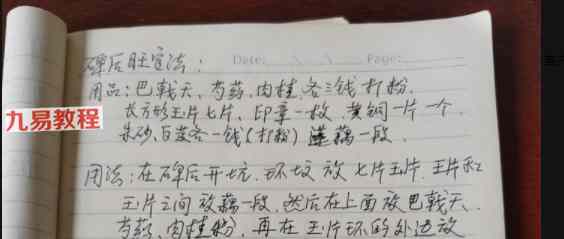 碑后旺官法:
Date: Page:
用品:巴戟天、芍药、肉桂,各三钱打粉.
长方形玉片七片、印章一枚、黄铜一片一个.
朱砂、白芨各一钱(打粉) 莲藕一段.
九易教程
用法:在碑后开坑.环坟放七片玉片.玉片和
玉片之间放藕一段.然后在上面放巴戟天.
芍药、肉桂粉,再在玉片环的外边放